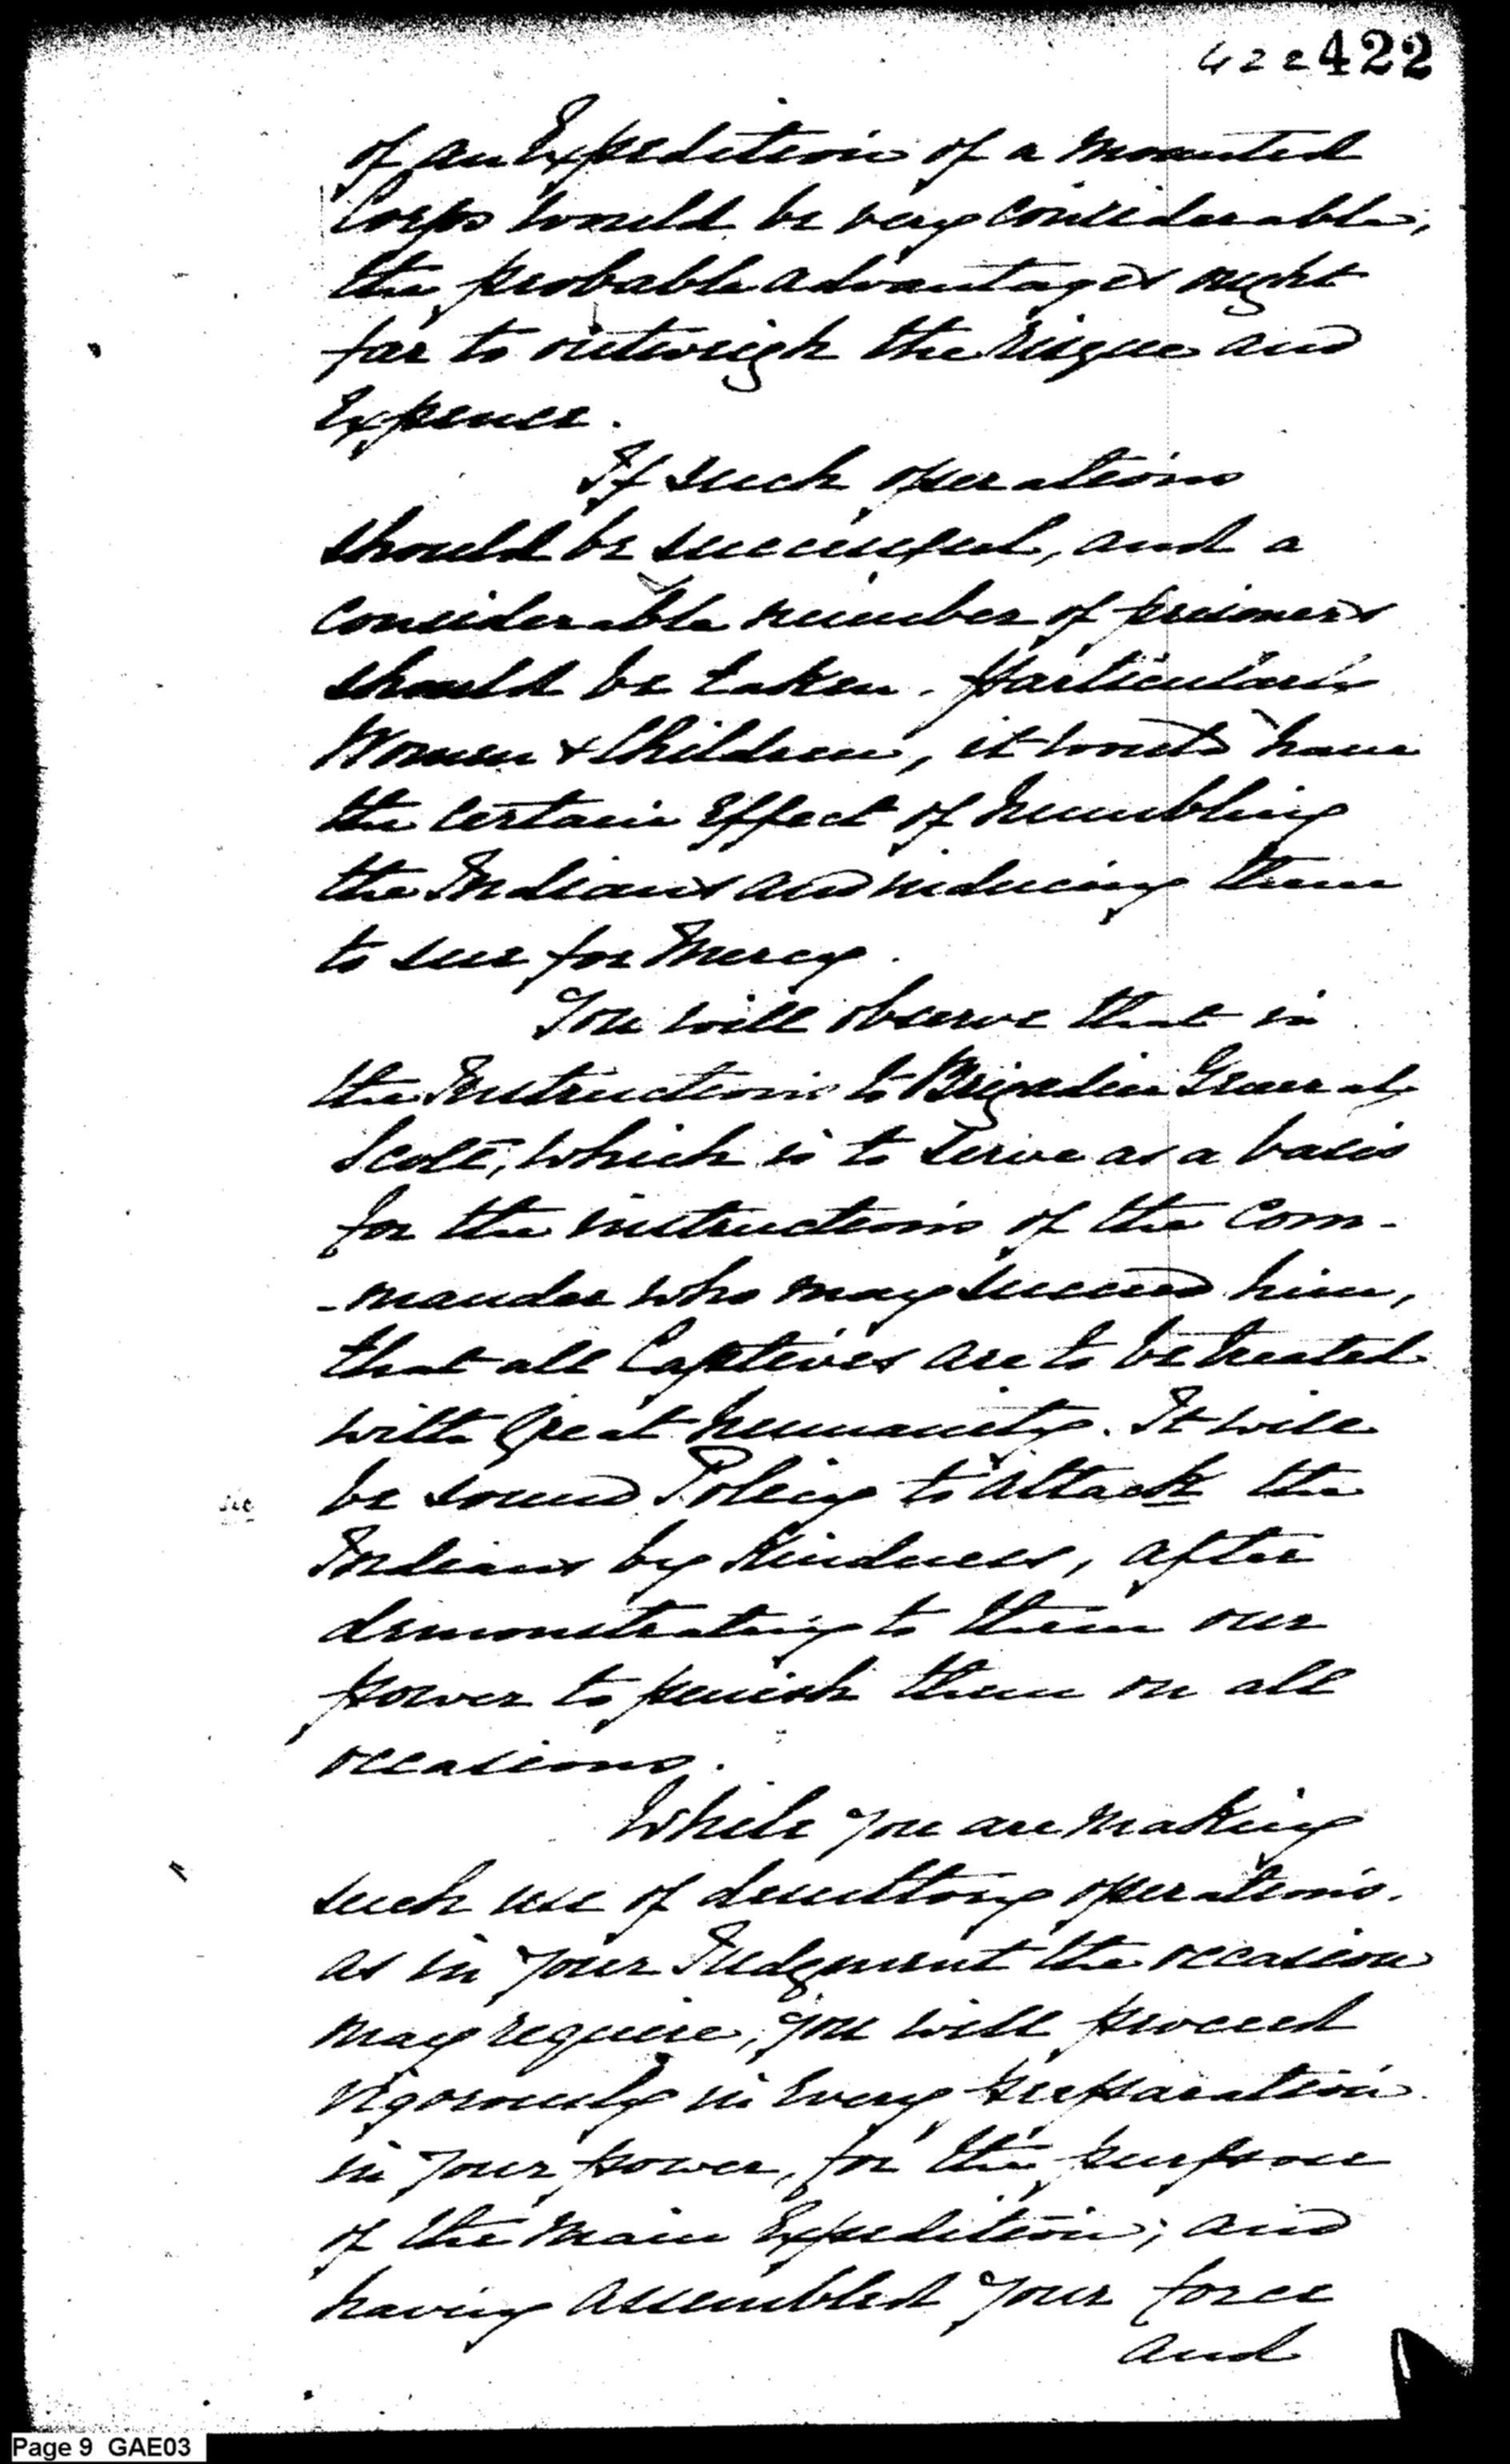 422 422
of an Expedition of a mounted
Corps would be very considerable,
the probable advantages ought
far to outweigh the risque and
Expence.
If such operations
should be successful, and a
considerable number of prisoners
should be taken. Particularly
Women & Children, it would have
the certain Effect of humbling
the Indians and inducing them
to sue for Mercy.
You will observe that in
the Instructions to Brigadier General
Scott, which is to serve as a basis
for the instructions of the Com-
-mander who may succeed him,
that all Captives are to be treated
with great humanity. It will
be sound Policy to attack the
sic
Indians by Kindness, after
demonstrating to them our
power to punish them on all
occasions.
While you are making
such use of desultory operations.
as in your Judgment the occasion
may require, you will proceed
vigorously in every preparation
in your power, for the purpose
of the main Expedition; and
having assembled your force
and
Page 9 GAE03